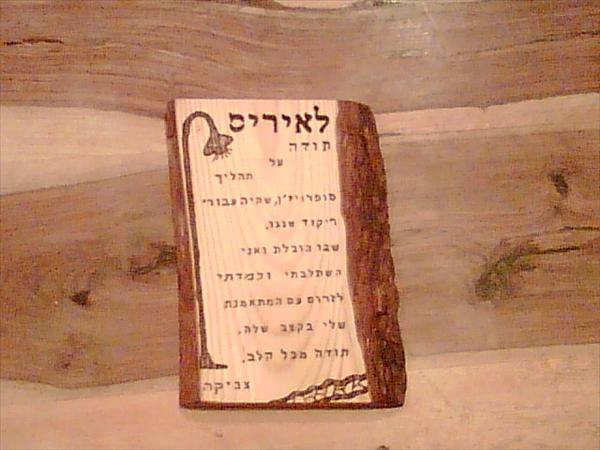 לאיריס
תודה
על
תהליך
סופרויז'ן, שהיה עבורי
ריקוד טנגו,
שבו הובלת ואני
השתלבתי ולמדתי
לזרום עם המתאמנת
שלי בקצב שלה.
תודה מכל הלב,
צביקה